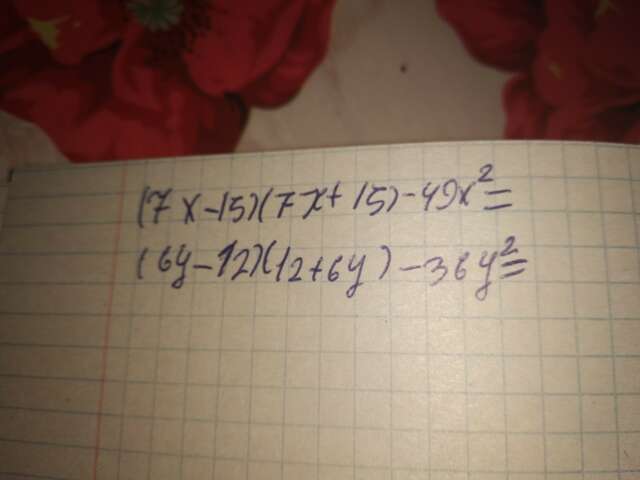 (7x-15)(7x+15)-49x²=
(6y-12)(12+6y)-36y²=